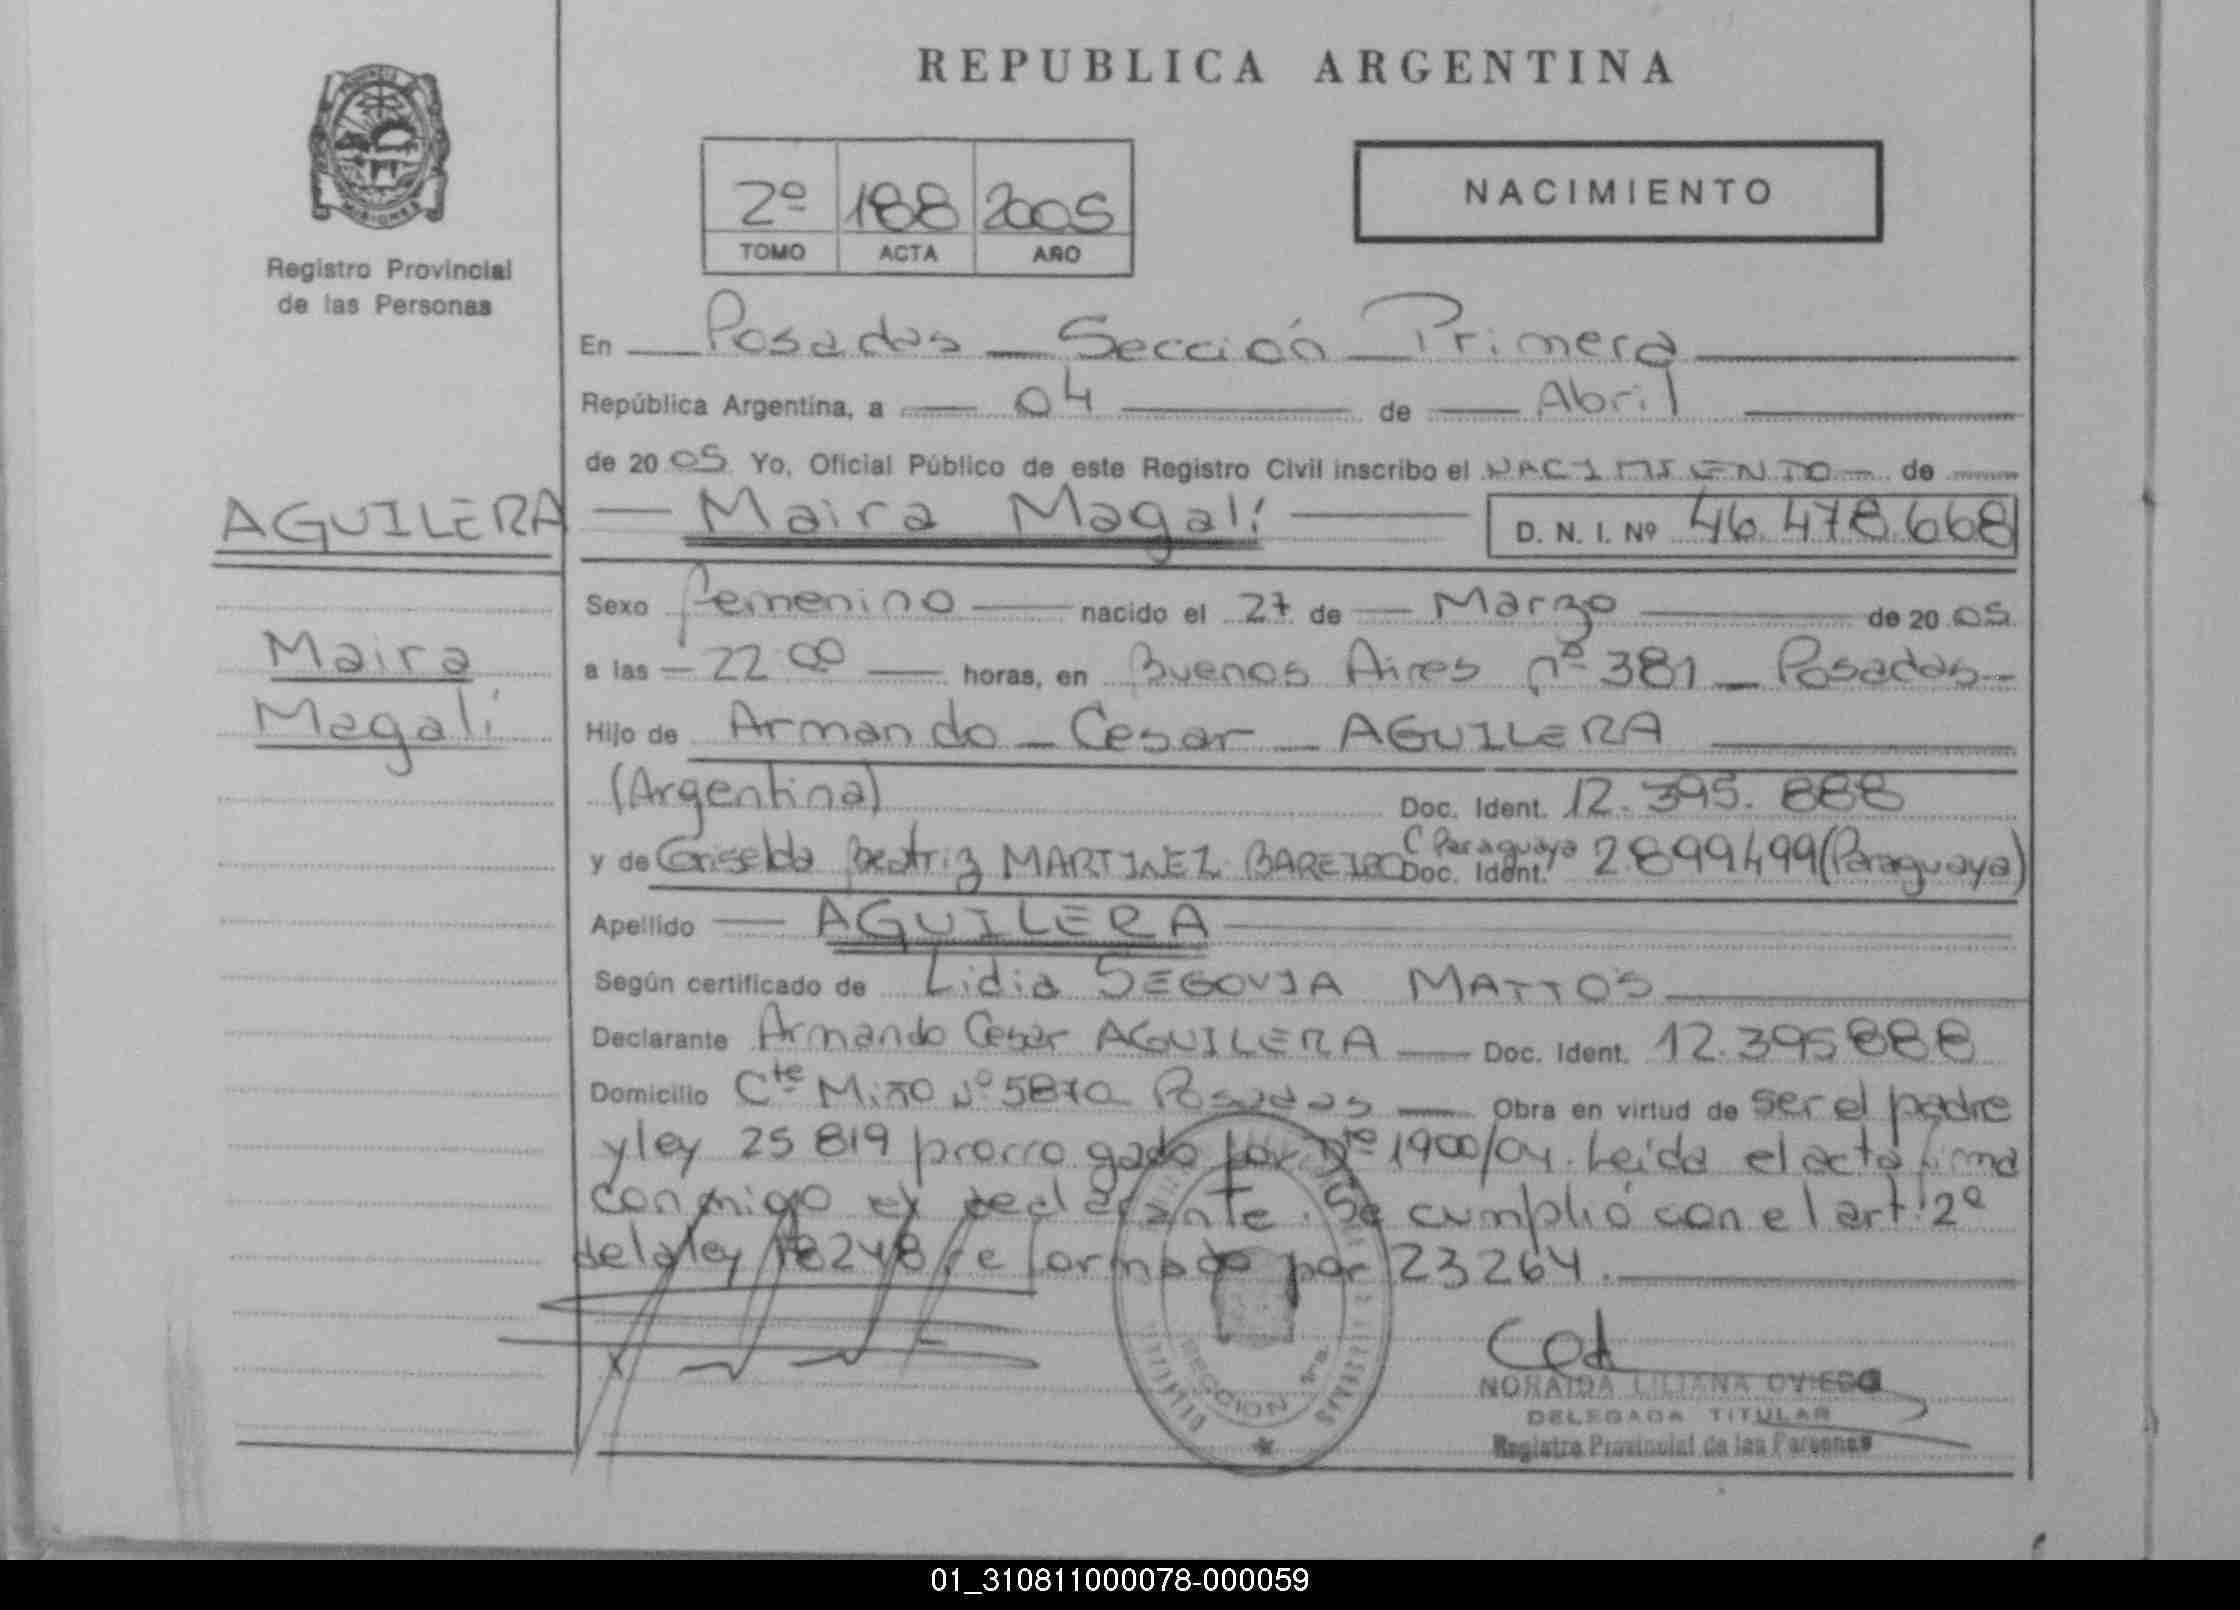 REPUBLICA ARGENTINA
MISIONES
Registro Provincial
de las Personas
2º 188 2005
TOMO ACTA AÑO
NACIMIENTO
En Posadas - Sección Primera
República Argentina, a 04 de Abril
de 2005 Yo, Oficial Público de este Registro Civil inscribo el NACIMIENTO de
AGUILERA
Maira Magalí D. N. I. Nº 46.478.668
Sexo femenino nacido el 27 de Marzo de 2005
Maira
Magalí
a las 22 00 horas, en Buenos Aires nº 381 - Posadas
Hijo de Armando - Cesar - AGUILERA
(Argentina) Doc. Ident. 12.395.888
y de Griselda Beatriz MARTINEZ BAREIRO C Paraguaya Doc. Ident. 2899499 (Paraguaya)
Apellido AGUILERA
Según certificado de Lidia SEGOVIA MATTOS
Declarante Armando Cesar AGUILERA Doc. Ident. 12.395888
Domicilio Cte Miño Nº 5870 Posadas Obra en virtud de ser el padre
y ley 25 819 prorrogado por 1900/04. Leída el acta firma
conmigo el declarante. Se cumplió con el art. 2º
de la ley 18248 reformado por 23264.
SECCION 1ra.
NORAIDA LILIANA OVIEDO
DELEGADA TITULAR
Registro Provincial de las Personas
01_310811000078-000059